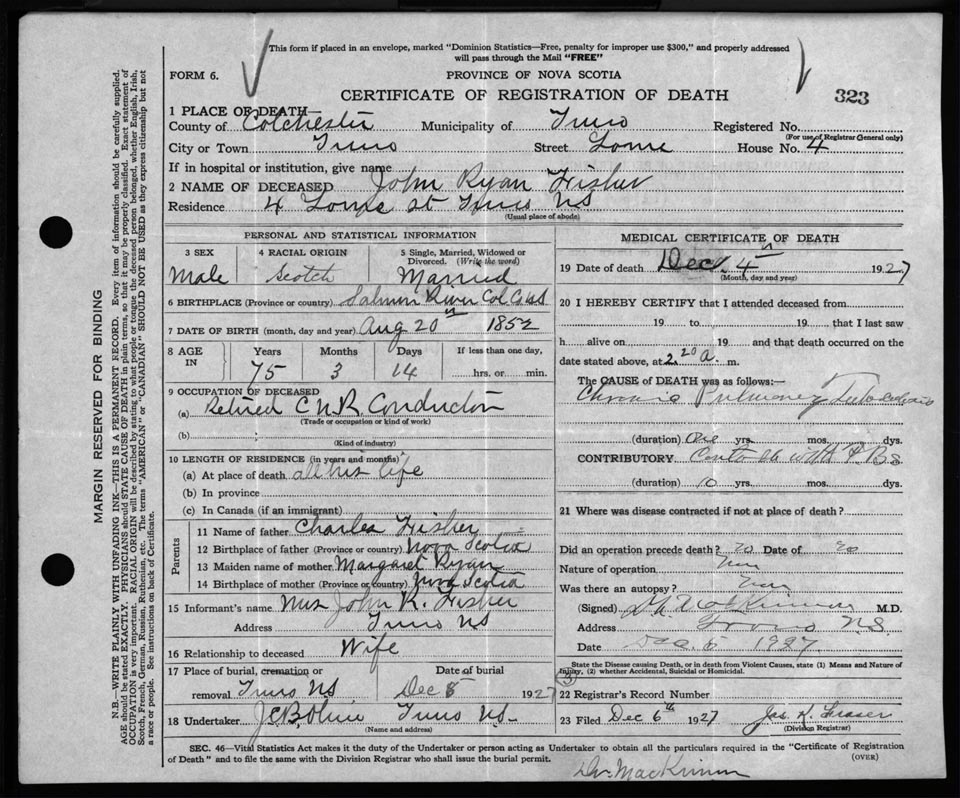 This form if placed in an envelope, marked "Dominion Statistics—Free, penalty for improper use $300," and properly addressed
will pass through the Mail "FREE"
FORM 6.
PROVINCE OF NOVA SCOTIA
CERTIFICATE OF REGISTRATION OF DEATH
323
1 PLACE OF DEATH—
County of Colchester Municipality of Truro Registered No.
(For use of Registrar General only)
City or Town Truro Street Lorne House No. 4
If in hospital or institution, give name
2 NAME OF DECEASED John Ryan Fisher
Residence 4 Lorne St Truro NS
(Usual place of abode)
PERSONAL AND STATISTICAL INFORMATION
3 SEX 4 RACIAL ORIGIN 5 Single, Married, Widowed or
Divorced. (Write the word)
Male Scotch Married
6 BIRTHPLACE (Province or country) Salmon River Col Co NS
7 DATE OF BIRTH (month, day and year) Aug 20th 1852
8 AGE IN Years Months Days If less than one day,
75 3 14 hrs. or min.
9 OCCUPATION OF DECEASED
(a) Retired C N R Conductor
(Trade or occupation or kind of work)
(b)
(Kind of industry)
10 LENGTH OF RESIDENCE (in years and months)
(a) At place of death all his life
(b) In province
(c) In Canada (if an immigrant)
Parents
11 Name of father Charles Fisher
12 Birthplace of father (Province or country) Nova Scotia
13 Maiden name of mother Margaret Ryan
14 Birthplace of mother (Province or country) Nova Scotia
15 Informant's name Mrs John R. Fisher
Address Truro NS
16 Relationship to deceased Wife
17 Place of burial, cremation or Date of burial
removal Truro NS Dec 5 1927
18 Undertaker Truro NS
(Name and address)
MEDICAL CERTIFICATE OF DEATH
19 Date of death Dec. 4th 1927
(Month, day and year)
20 I HEREBY CERTIFY that I attended deceased from
19 to 19 that I last saw
h alive on 19 and that death occurred on the
date stated above, at 2.20 a. m.
The CAUSE OF DEATH was as follows:—
Chronic Pulmonary Tuberculosis
(duration) One yrs. mos. dys.
CONTRIBUTORY. Contact with
(duration) 10 yrs. mos. dys.
21 Where was disease contracted if not at place of death?
Did an operation precede death? no Date of no
Nature of operation
Was there an autopsy?
(Signed) MacKinnon M.D.
Address Truro N.S.
Date Dec. 5 1927
State the Disease causing Death, or in death from Violent Causes, state (1) Means and Nature of
Injury, (2) whether Accidental, Suicidal or Homicidal.
22 Registrar's Record Number
23 Filed Dec 6th 1927 Jas K. Fraser
(Division Registrar)
SEC. 46—Vital Statistics Act makes it the duty of the Undertaker or person acting as Undertaker to obtain all the particulars required in the "Certificate of Registration
of Death" and to file the same with the Division Registrar who shall issue the burial permit. (OVER)
Dr. MacKinnon
MARGIN RESERVED FOR BINDING
N.B.—WRITE PLAINLY WITH UNFADING INK—THIS IS A PERMANENT RECORD. Every item of information should be carefully supplied.
AGE should be stated EXACTLY. PHYSICIANS should STATE CAUSE OF DEATH in plain terms, so that it may be properly classified. Exact statement of
OCCUPATION is very important. RACIAL ORIGIN will be described by stating to what people or tongue the deceased person belonged, whether English, Irish,
Scotch, French, German, Russian, Ruthenian, etc. The terms "AMERICAN" or "CANADIAN" SHOULD NOT BE USED as they express citizenship but not
a race or people. See instructions on back of Certificate.